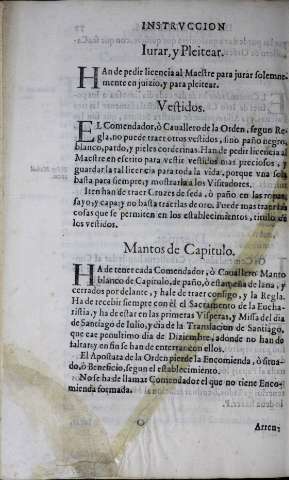 INSTRVCCION
Iurar, y Pleitear.
HAn de pedir licencia al Maestre para jurar solemne-
mente en juizio, y para pleitear.
Vestidos.
EL Comendador, ò Cauallero de la Orden, segun Re-
gla, no puede traer otros vestidos, sino paño negro,
blanco, pardo, y pieles corderinas. Han de pedir licencia al
Maestre en escrito para vestir vestidos mas preciosos, y
guardar la tal licencia para toda la vida, porque vna sola
basta para siempre, y mostrarla a los Visitadores.
Iten han de traer Cruzes de seda, ò paño en las ropas,
sayo, y capa: y no basta traerlas de oro. Puede mas traer las
cosas que se permiten en los establecimientos, titulo de
los vestidos.
Mantos de Capitulo.
HA de tener cada Comendador, ò Cauallero Manto
blanco de Capitulo, de paño, ò estameña de lana, y
cerrados por delante, y hale de traer consigo, y la Regla.
Ha de recebir siempre con èl el Sacramento de la Eucha-
ristia, y ha de estar en las primeras Visperas, y Missa del dia
de Santiago de Iulio, y dia de la Translacion de Santiago,
que cae penultimo dia de Diziembre, adonde no han de
faltar: y en fin se han de enterrar con ellos.
El Apostata de la Orden pierde la Encomienda, ò situa-
do, ò Beneficio, segun el establecimiento.
No se ha de llamar Comendador el que no tiene Enco-
mienda formada.